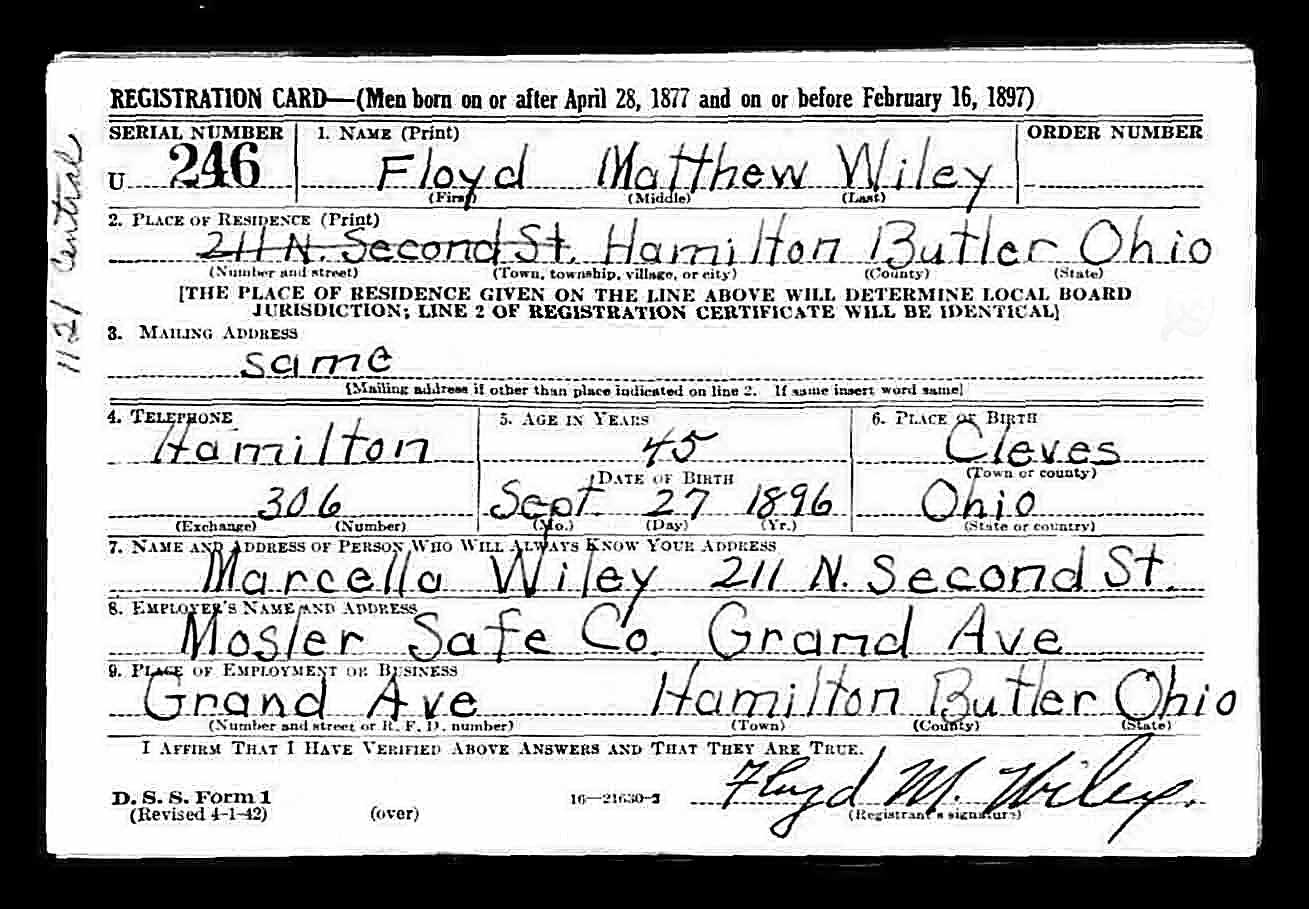 REGISTRATION CARD—(Men born on or after April 28, 1877 and on or before February 16, 1897)
SERIAL NUMBER 1. NAME (Print) ORDER NUMBER
U 246 Floyd Matthew Wiley
(First) (Middle) (Last)
2. PLACE OF RESIDENCE (Print)
211 N. Second St. Hamilton Butler Ohio
(Number and street) (Town, township, village, or city) (County) (State)
[THE PLACE OF RESIDENCE GIVEN ON THE LINE ABOVE WILL DETERMINE LOCAL BOARD
JURISDICTION; LINE 2 OF REGISTRATION CERTIFICATE WILL BE IDENTICAL]
1121 Central
3. MAILING ADDRESS
same
[Mailing address if other than place indicated on line 2. If same insert word same]
4. TELEPHONE 5. AGE IN YEARS 6. PLACE OF BIRTH
Hamilton 45 Cleves
DATE OF BIRTH (Town or county)
306 Sept. 27 1896 Ohio
(Exchange) (Number) (Mo.) (Day) (Yr.) (State or country)
7. NAME AND ADDRESS OF PERSON WHO WILL ALWAYS KNOW YOUR ADDRESS
Marcella Wiley 211 N. Second St.
8. EMPLOYER'S NAME AND ADDRESS
Mosler Safe Co. Grand Ave
9. PLACE OF EMPLOYMENT OR BUSINESS
Grand Ave Hamilton Butler Ohio
(Number and street or R. F. D. number) (Town) (County) (State)
I AFFIRM THAT I HAVE VERIFIED ABOVE ANSWERS AND THAT THEY ARE TRUE.
Floyd M. Wiley.
D. S. S. Form 1 16—21630-2 (Registrant's signature)
(Revised 4-1-42) (over)